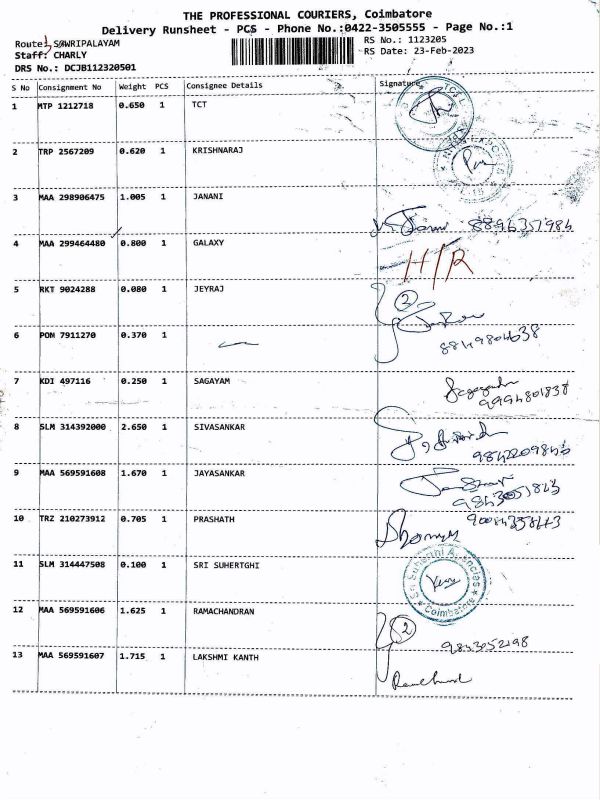 THE PROFESSIONAL COURIERS, Coimbatore
Delivery Runsheet - PCS - Phone No.:0422-3505555 - Page No.:1
Route: SOWRIPALAYAM
RS No.: 1123205
Staff: CHARLY
RS Date: 23-Feb-2023
DRS No.: DCJB112320501
S No Consignment No Weight PCS Consignee Details Signature
1 MTP 1212718 0.650 1 TCT
2 TRP 2567209 0.620 1 KRISHNARAJ
3 MAA 298906475 1.005 1 JANANI
4 MAA 299464480 0.800 1 GALAXY H/R
5 RKT 9024288 0.080 1 JEYRAJ 2
6 PON 7911270 0.370 1
7 KDI 497116 0.250 1 SAGAYAM
9994801838
8 SLM 314392000 2.650 1 SIVASANKAR
9842209846
9 MAA 569591608 1.670 1 JAYASANKAR
10 TRZ 210273912 0.705 1 PRASHATH
11 SLM 314447508 0.100 1 SRI SUHERTGHI
Sri Suherthi Agencies
Coimbatore
12 MAA 569591606 1.625 1 RAMACHANDRAN 2
13 MAA 569591607 1.715 1 LAKSHMI KANTH